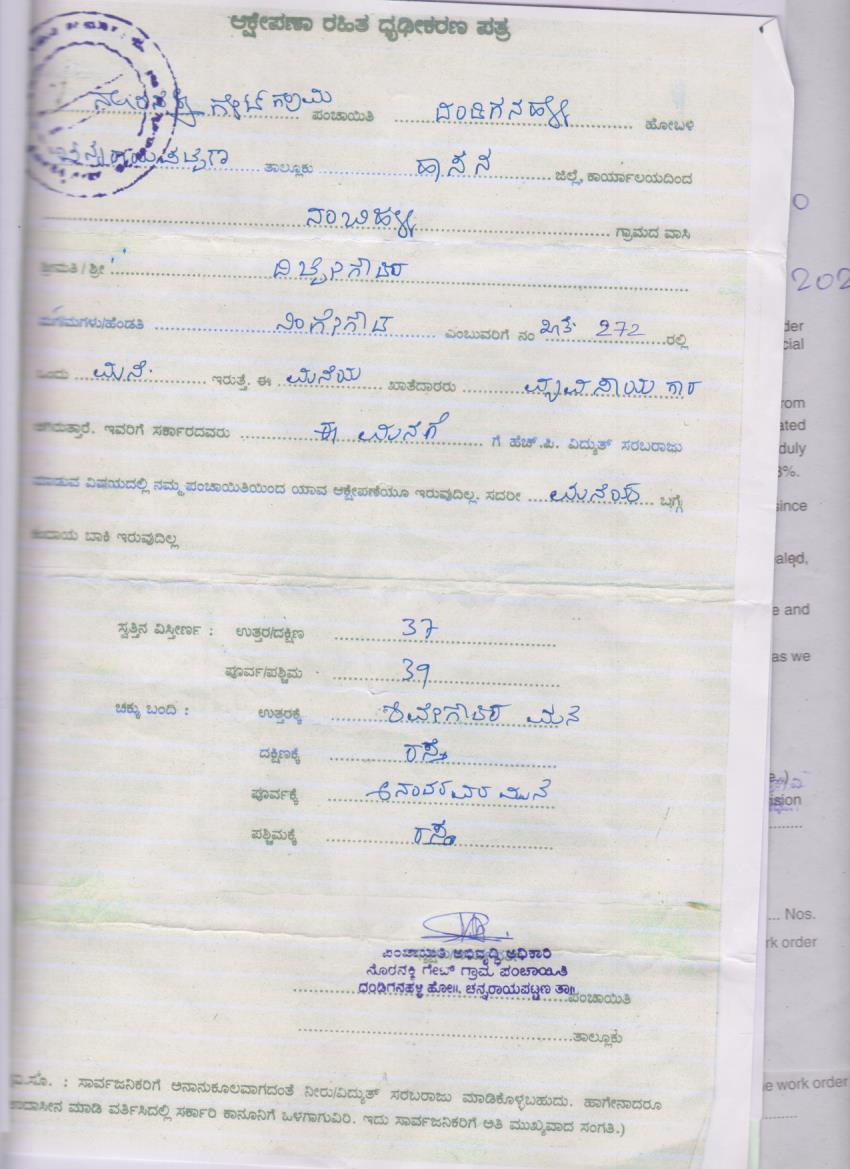 ಆಕ್ಷೇಪಣಾ ರಹಿತ ದೃಢೀಕರಣ ಪತ್ರ
ಗೇಟ್ ಗ್ರಾಮ ಪಂಚಾಯಿತಿ ದಂಡಿಗನಹಳ್ಳಿ ಹೋಬಳಿ
ಚನ್ನರಾಯಪಟ್ಟಣ ತಾಲ್ಲೂಕು ಹಾಸನ ಜಿಲ್ಲೆ, ಕಾರ್ಯಾಲಯದಿಂದ
ನಂಬಿಹಳ್ಳಿ ಗ್ರಾಮದ ವಾಸಿ
ಶ್ರೀಮತಿ / ಶ್ರೀ
ಮಗ/ಮಗಳು/ಹೆಂಡತಿ ನಿಂಗೇಗೌಡ ಎಂಬುವರಿಗೆ ನಂ 272 ರಲ್ಲಿ
ಒಂದು ಮನೆ ಇರುತ್ತೆ. ಈ ಮನೆಯ ಖಾತೆದಾರರು ವ್ಯವಸಾಯಗಾರ
ಆಗಿರುತ್ತಾರೆ. ಇವರಿಗೆ ಸರ್ಕಾರದವರು ಈ ಮನೆಗೆ ಗೆ ಹೆಚ್.ಪಿ. ವಿದ್ಯುತ್ ಸರಬರಾಜು
ಮಾಡುವ ವಿಷಯದಲ್ಲಿ ನಮ್ಮ ಪಂಚಾಯಿತಿಯಿಂದ ಯಾವ ಆಕ್ಷೇಪಣೆಯೂ ಇರುವುದಿಲ್ಲ. ಸದರೀ ಮನೆಯ ಬಗ್ಗೆ
ಕಂದಾಯ ಬಾಕಿ ಇರುವುದಿಲ್ಲ
ಸ್ವತ್ತಿನ ವಿಸ್ತೀರ್ಣ : ಉತ್ತರ/ದಕ್ಷಿಣ 37
ಪೂರ್ವ/ಪಶ್ಚಿಮ 39
ಚಕ್ಕು ಬಂದಿ : ಉತ್ತರಕ್ಕೆ ಮನೆ
ದಕ್ಷಿಣಕ್ಕೆ ರಸ್ತೆ
ಪೂರ್ವಕ್ಕೆ ಮನೆ
ಪಶ್ಚಿಮಕ್ಕೆ ರಸ್ತೆ
ಪಂಚಾಯಿತಿ ಅಭಿವೃದ್ಧಿ ಅಧಿಕಾರಿ
ನೊರನಕ್ಕಿ ಗೇಟ್ ಗ್ರಾಮ ಪಂಚಾಯಿತಿ
ದಂಡಿಗನಹಳ್ಳಿ ಹೋ॥, ಚನ್ನರಾಯಪಟ್ಟಣ ತಾ॥
ಪಂಚಾಯಿತಿ
ತಾಲ್ಲೂಕು
ವಿ.ಸೂ. : ಸಾರ್ವಜನಿಕರಿಗೆ ಅನಾನುಕೂಲವಾಗದಂತೆ ನೀರು/ವಿದ್ಯುತ್ ಸರಬರಾಜು ಮಾಡಿಕೊಳ್ಳಬಹುದು. ಹಾಗೇನಾದರೂ
ಉದಾಸೀನ ಮಾಡಿ ವರ್ತಿಸಿದಲ್ಲಿ ಸರ್ಕಾರಿ ಕಾನೂನಿಗೆ ಒಳಗಾಗುವಿರಿ. ಇದು ಸಾರ್ವಜನಿಕರಿಗೆ ಅತಿ ಮುಖ್ಯವಾದ ಸಂಗತಿ.)
202
duly
3%.
since
e and
as we
... Nos.
rk order
e work order